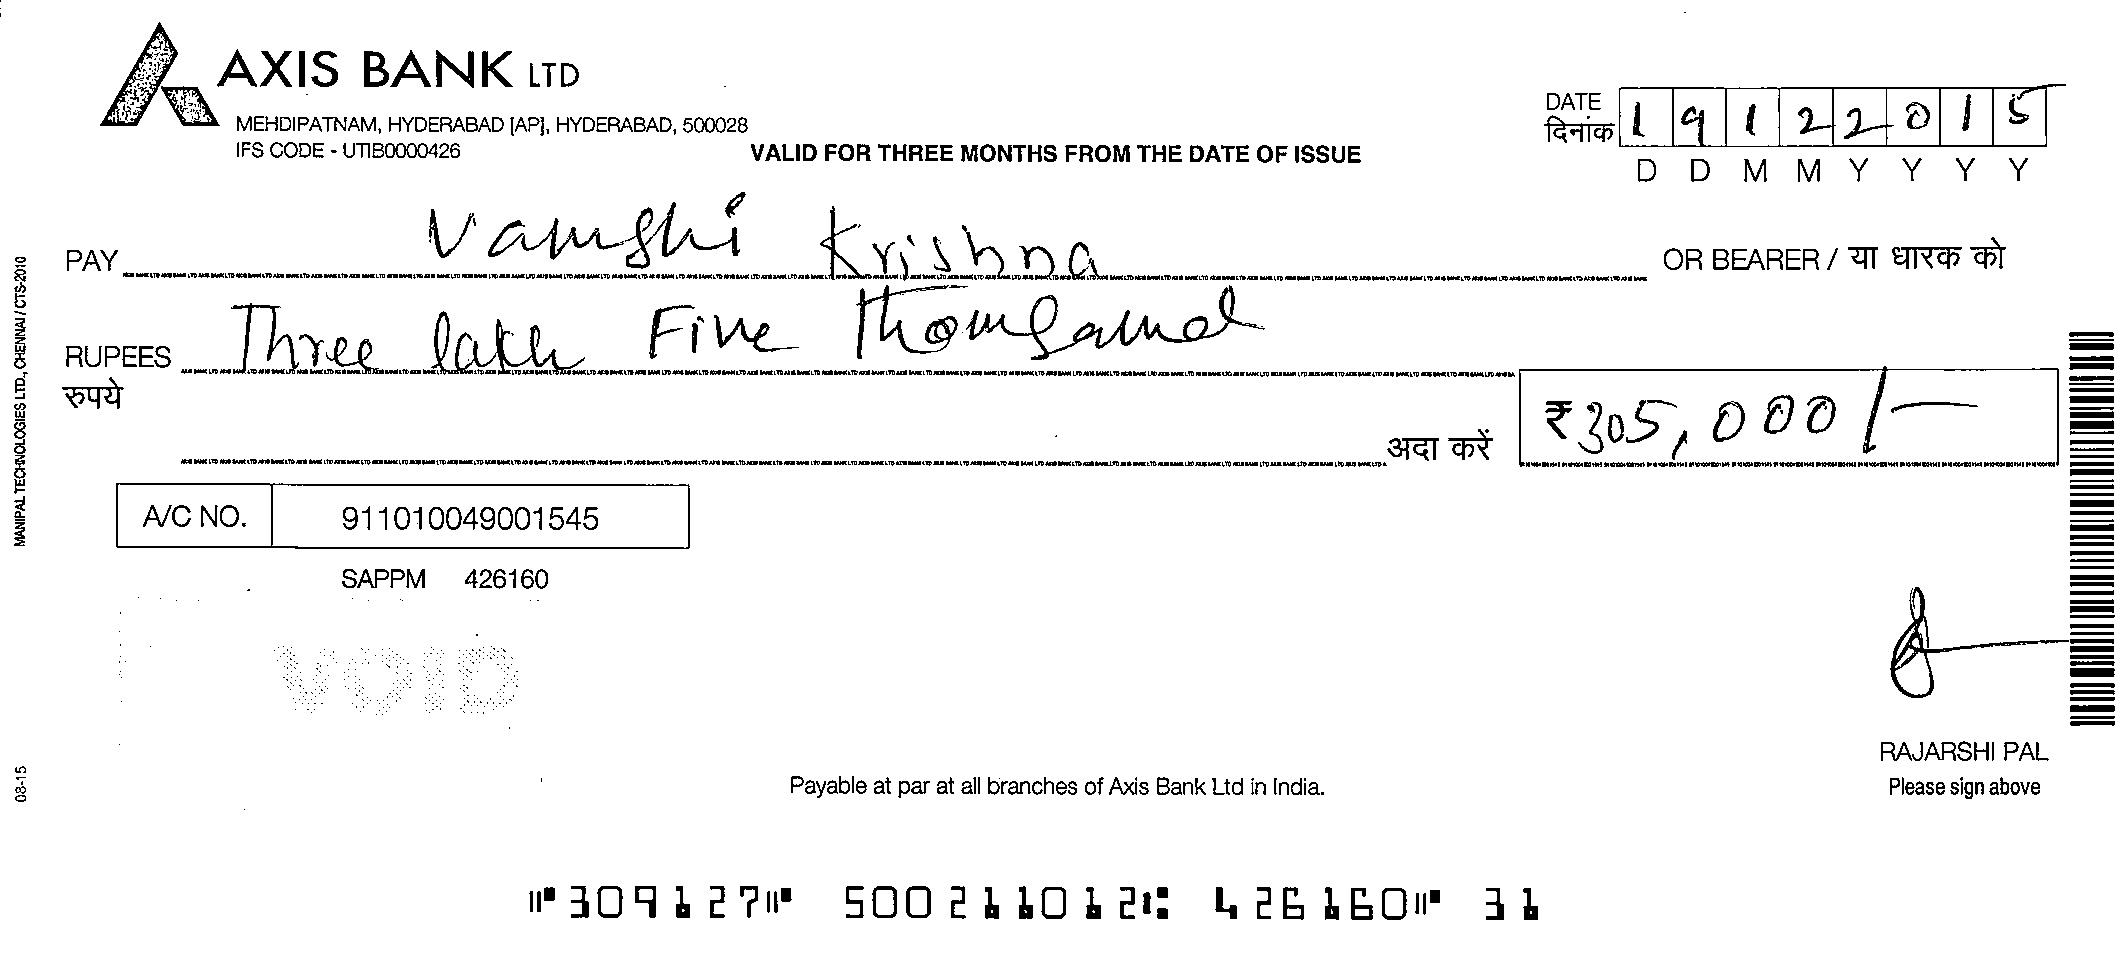 AXIS BANK LTD
MEHDIPATNAM, HYDERABAD [AP], HYDERABAD, 500028
IFS CODE - UTIB0000426
VALID FOR THREE MONTHS FROM THE DATE OF ISSUE
DATE
दिनांक 1 9 1 2 2 0 1 5
D D M M Y Y Y Y
PAY Vamshi Krishna OR BEARER / या धारक को
RUPEES Three lakh Five Thousand
रुपये
अदा करें ₹ 305,000/-
A/C NO. 911010049001545
SAPPM 426160
VOID
RAJARSHI PAL
Please sign above
Payable at par at all branches of Axis Bank Ltd in India.
⑈309127⑈ 500211012⑆ 426160⑈ 31
MANIPAL TECHNOLOGIES LTD., CHENNAI / CTS-2010
08-15